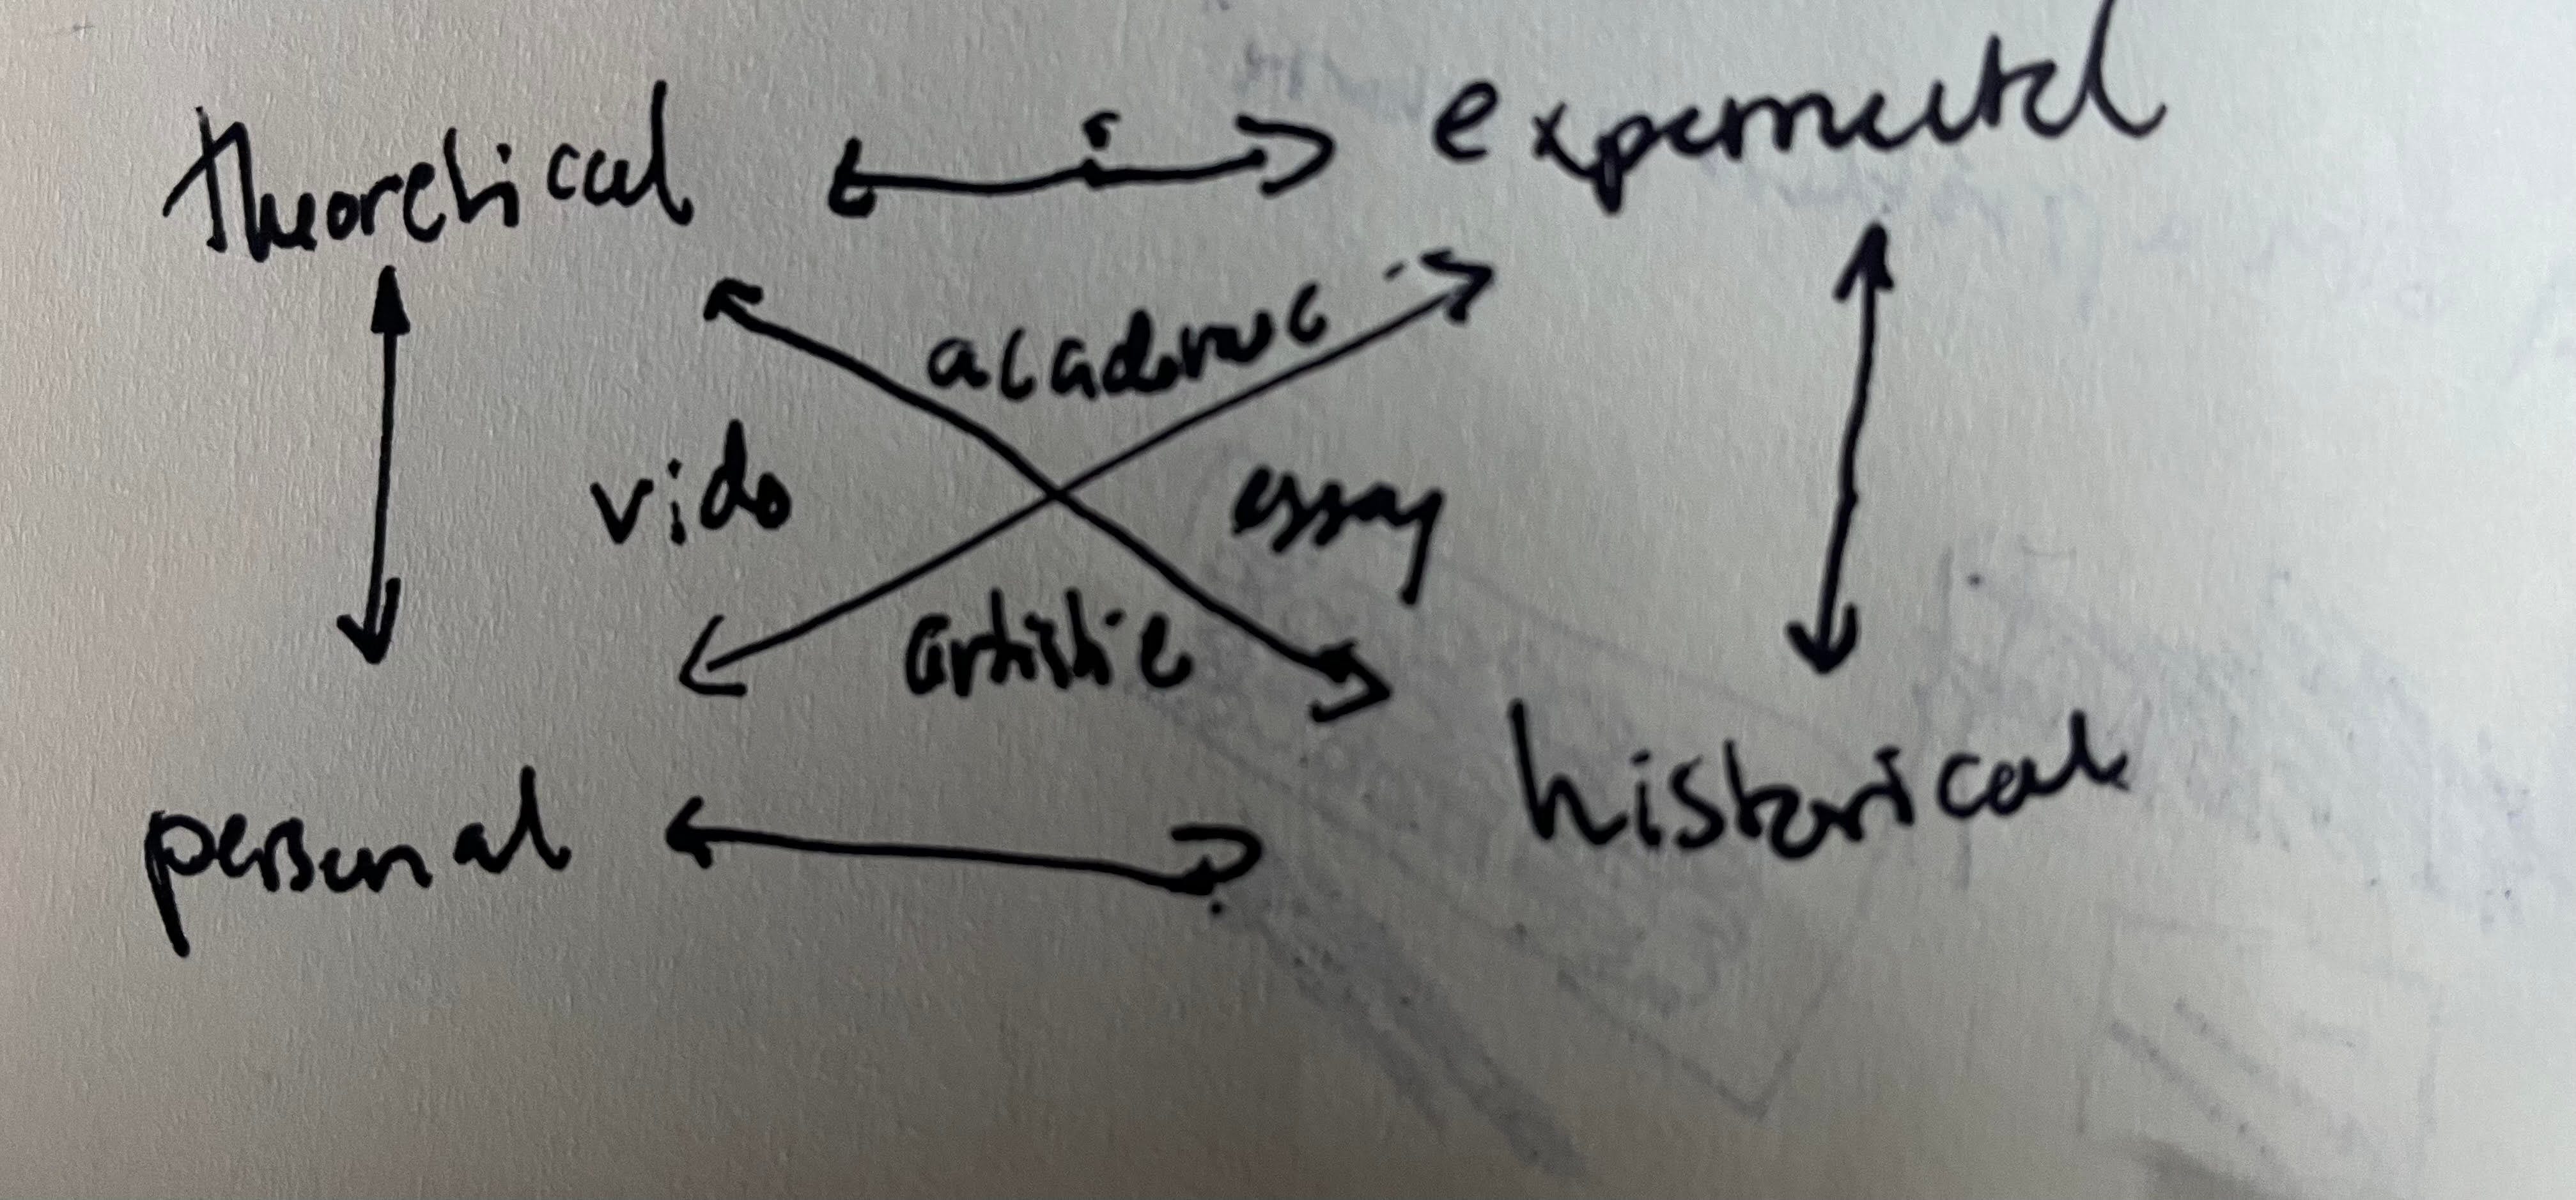 theoretical experimental
academic
vido essay
artistic
personal historical